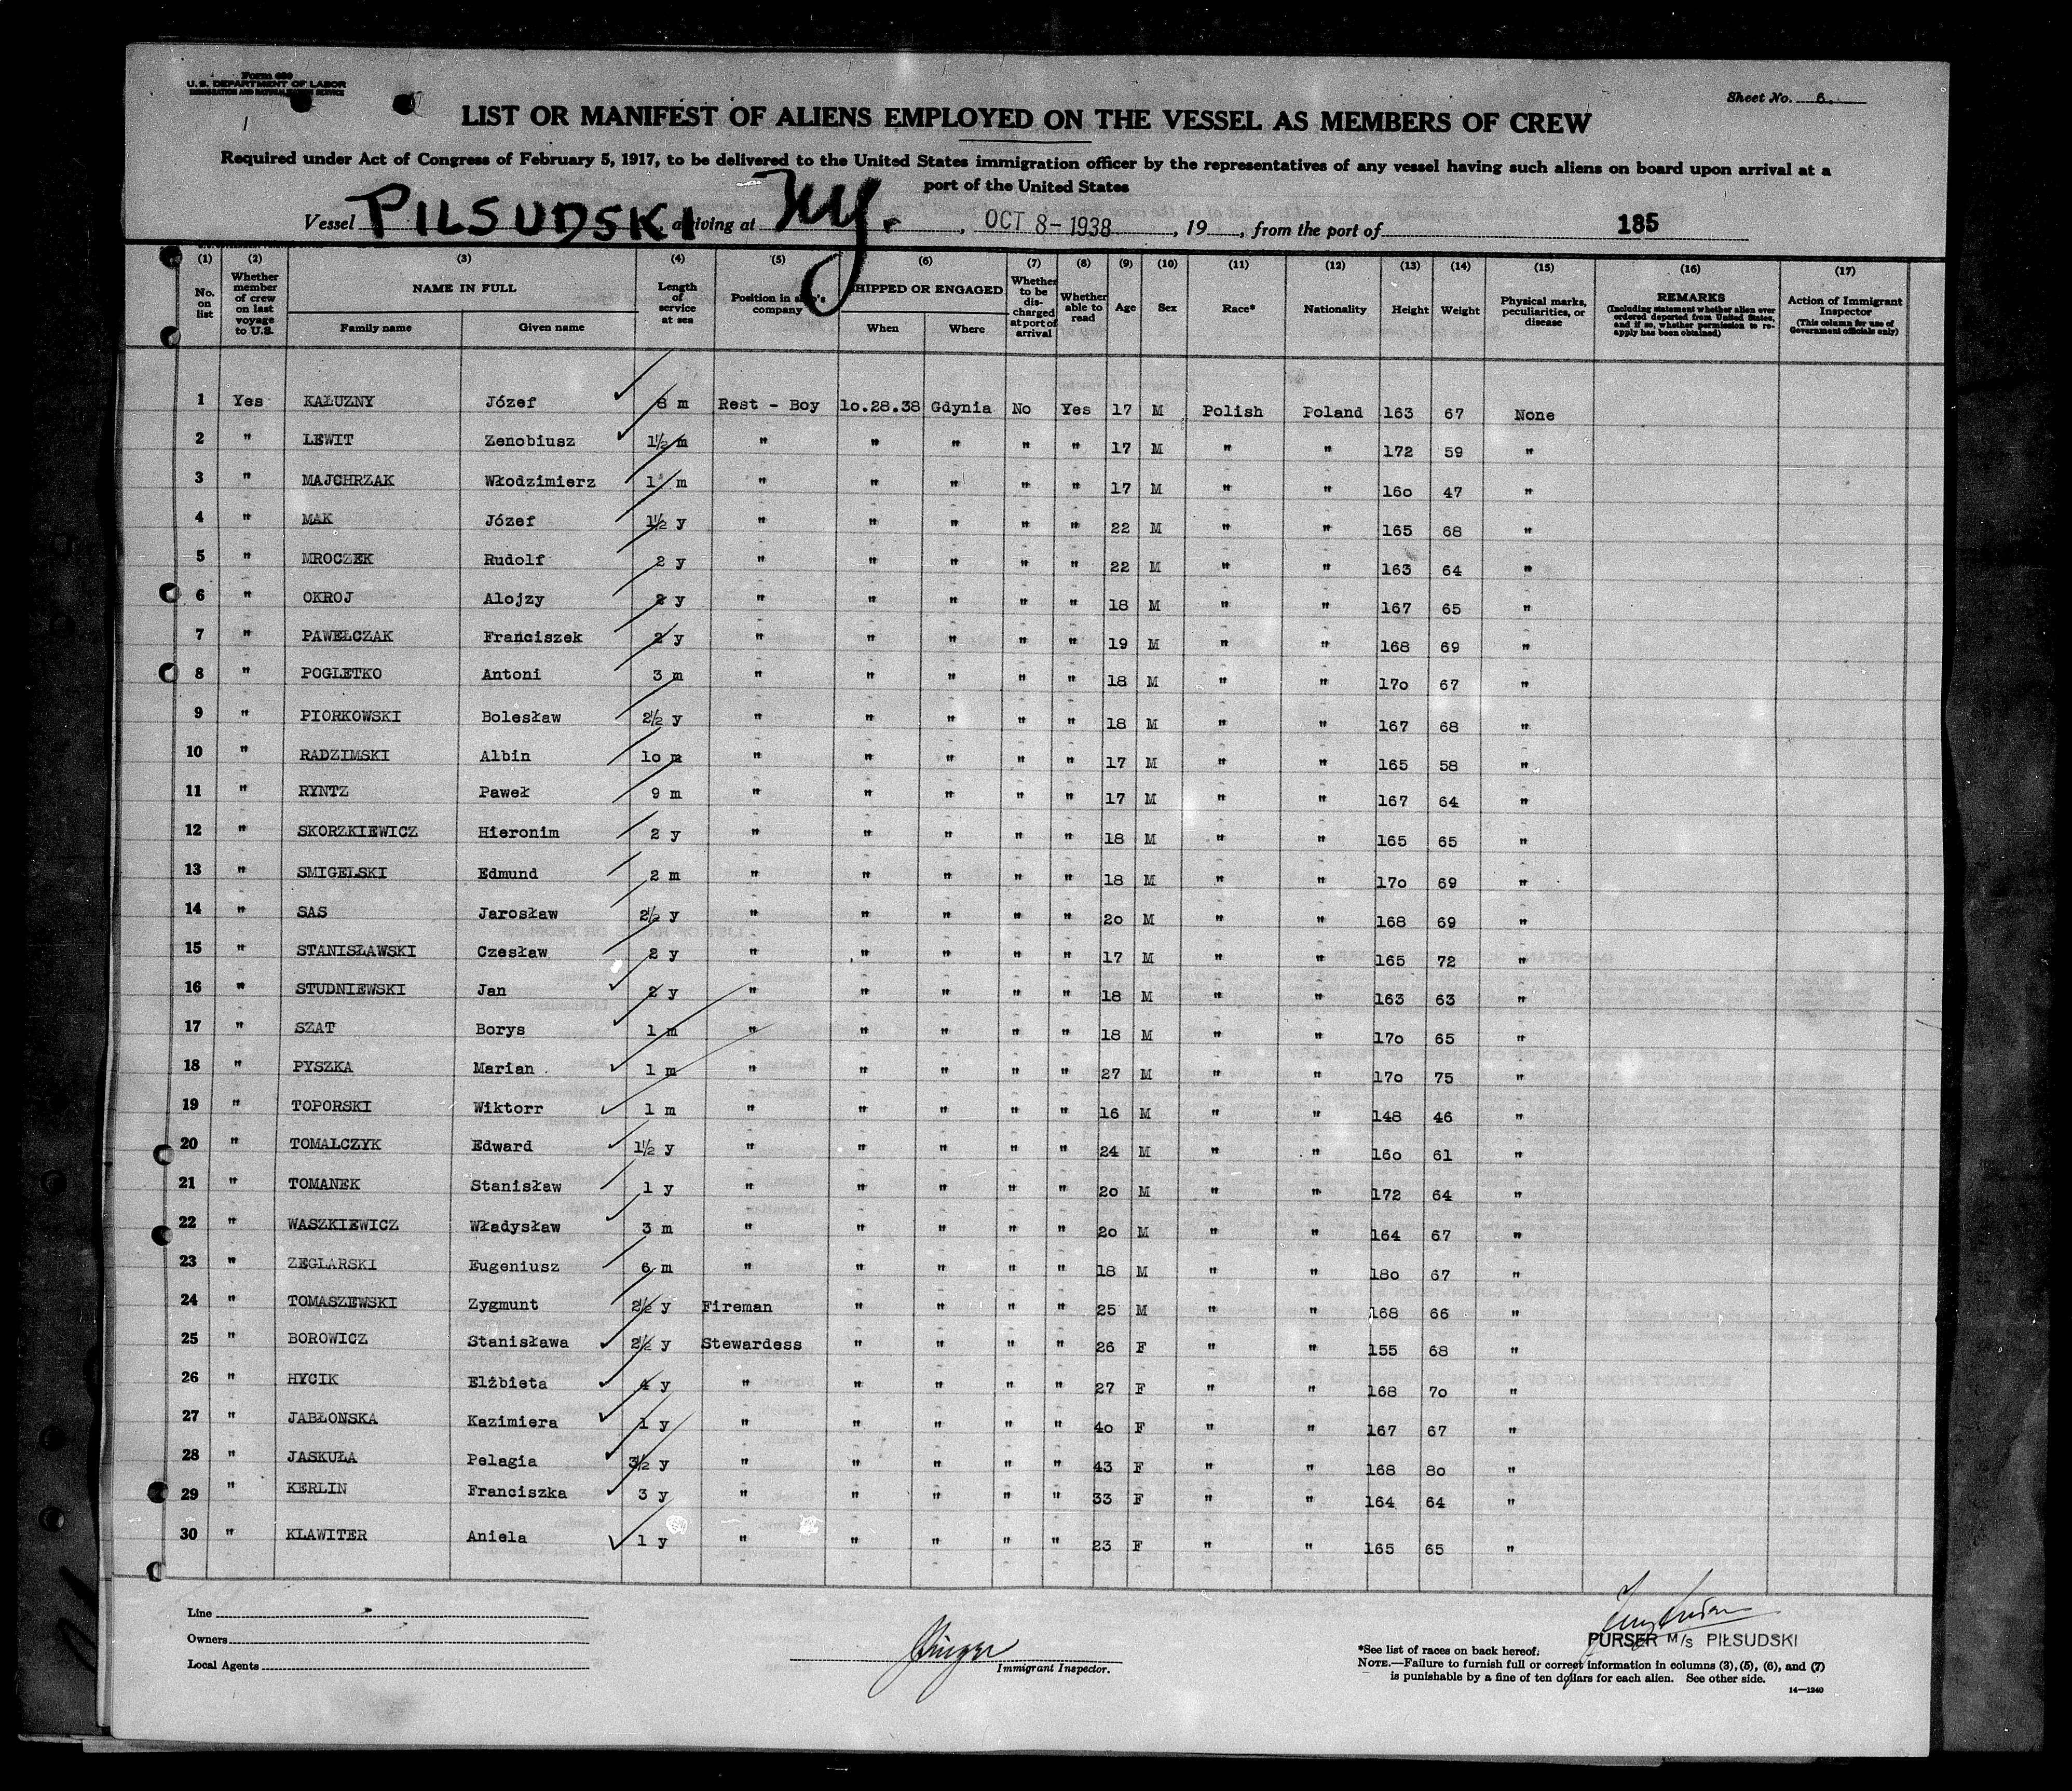 Form 680
U. S. DEPARTMENT OF LABOR
IMMIGRATION AND NATURALIZATION SERVICE
Sheet No. 6.
LIST OR MANIFEST OF ALIENS EMPLOYED ON THE VESSEL AS MEMBERS OF CREW
Required under Act of Congress of February 5, 1917, to be delivered to the United States immigration officer by the representatives of any vessel having such aliens on board upon arrival at a
port of the United States
Vessel PILSUDSKI arriving at N.Y. , OCT 8- 1938 , 19 , from the port of 185
(1) (2) (3) (4) (5) (6) (7) (8) (9) (10) (11) (12) (13) (14) (15) (16) (17)
No. on list Whether member of crew on last voyage to U.S. NAME IN FULL Family name Given name Length of service at sea Position in ship's company SHIPPED OR ENGAGED When Where Whether to be discharged at port of arrival Whether able to read Age Sex Race* Nationality Height Weight Physical marks, peculiarities, or disease REMARKS (Including statement whether alien ever ordered deported from United States, and if so, whether permission to reapply has been obtained) Action of Immigrant Inspector (This column for use of Government officials only)
1 Yes KAŁUZNY Józef 8 m Rest - Boy 10.28.38 Gdynia No Yes 17 M Polish Poland 163 67 None
2 " LEWIT Zenobiusz 1½ m " " " " " 17 M " " 172 59 "
3 " MAJCHRZAK Włodzimierz 1 m " " " " " 17 M " " 160 47 "
4 " MAK Józef 1½ y " " " " " 22 M " " 165 68 "
5 " MROCZEK Rudolf 2 y " " " " " 22 M " " 163 64 "
6 " OKROJ Alojzy 2 y " " " " " 18 M " " 167 65 "
7 " PAWEŁCZAK Franciszek 2 y " " " " " 19 M " " 168 69 "
8 " POGLETKO Antoni 3 m " " " " " 18 M " " 170 67 "
9 " PIORKOWSKI Bolesław 2½ y " " " " " 18 M " " 167 68 "
10 " RADZIMSKI Albin 10 m " " " " " 17 M " " 165 58 "
11 " RYNTZ Paweł 9 m " " " " " 17 M " " 167 64 "
12 " SKORZKIEWICZ Hieronim 2 y " " " " " 18 M " " 165 65 "
13 " SMIGELSKI Edmund 2 m " " " " " 18 M " " 170 69 "
14 " SAS Jarosław 2½ y " " " " " 20 M " " 168 69 "
15 " STANISŁAWSKI Czesław 2 y " " " " " 17 M " " 165 72 "
16 " STUDNIEWSKI Jan 2 y " " " " " 18 M " " 163 63 "
17 " SZAT Borys 1 m " " " " " 18 M " " 170 65 "
18 " PYSZKA Marian 1 m " " " " " 27 M " " 170 75 "
19 " TOPORSKI Wiktorr 1 m " " " " " 16 M " " 148 46 "
20 " TOMALCZYK Edward 1½ y " " " " " 24 M " " 160 61 "
21 " TOMANEK Stanisław 1 y " " " " " 20 M " " 172 64 "
22 " WASZKIEWICZ Władysław 3 m " " " " " 20 M " " 164 67 "
23 " ZEGLARSKI Eugeniusz 6 m " " " " " 18 M " " 180 67 "
24 " TOMASZEWSKI Zygmunt 2½ y Fireman " " " " 25 M " " 168 66 "
25 " BOROWICZ Stanisława 2½ y Stewardess " " " " 26 F " " 155 68 "
26 " HYCIK Elżbieta 4 y " " " " " 27 F " " 168 70 "
27 " JABŁONSKA Kazimiera 1 y " " " " " 40 F " " 167 67 "
28 " JASKUŁA Pelagia 3½ y " " " " " 43 F " " 168 80 "
29 " KERLIN Franciszka 3 y " " " " " 33 F " " 164 64 "
30 " KLAWITER Aniela 1 y " " " " " 23 F " " 165 65 "
Line
Owners
Local Agents
Immigrant Inspector.
PURSER M/S PIŁSUDSKI
*See list of races on back hereof.
NOTE.—Failure to furnish full or correct information in columns (3), (5), (6), and (7)
is punishable by a fine of ten dollars for each alien. See other side.
14—1240